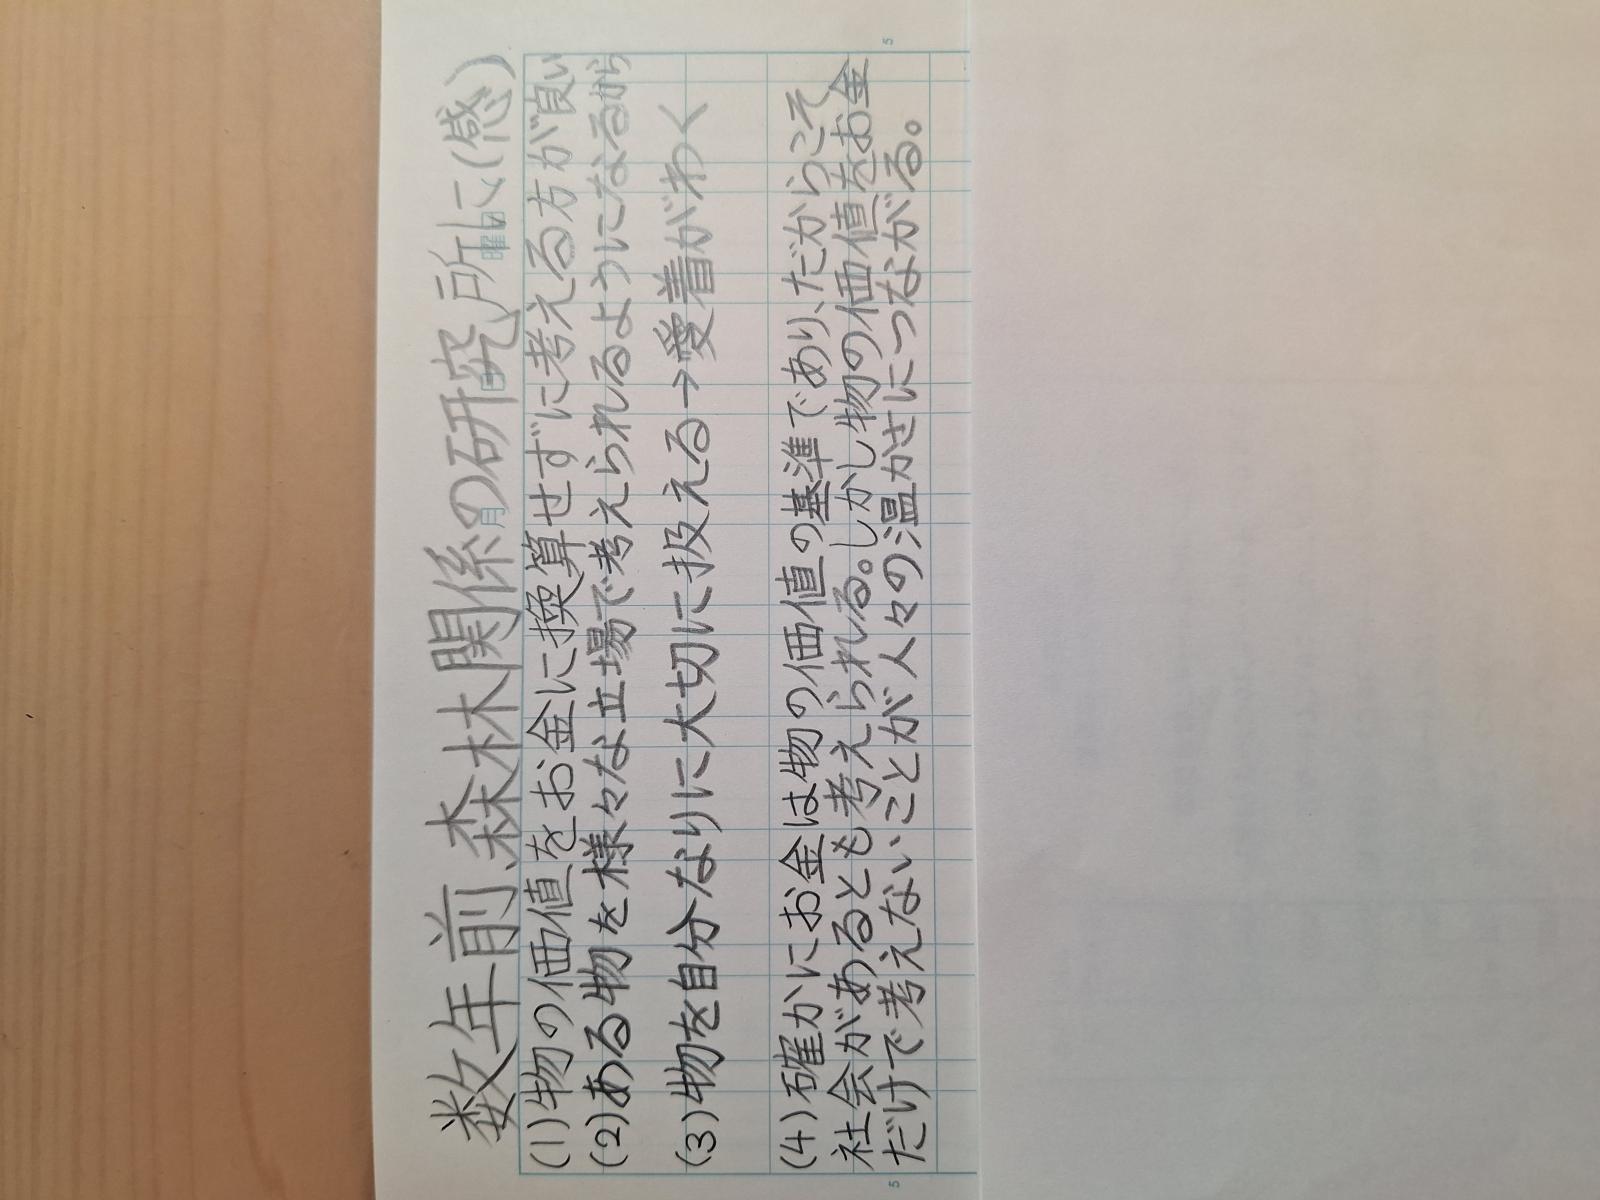 数年前、森林関係の研究所に(感)
(1)物の価値をお金に換算せずに考える方が良い
(2)ある物を様々な立場で考えられるようになるから
(3)物を自分なりに大切に扱える→愛着がわく
(4)確かにお金は物の価値の基準であり、だからこそ
社会があるとも考えられる。しかし物の価値をお金
だけで考えないことが人々の温かさにつながる。
月
日
曜日
5
5